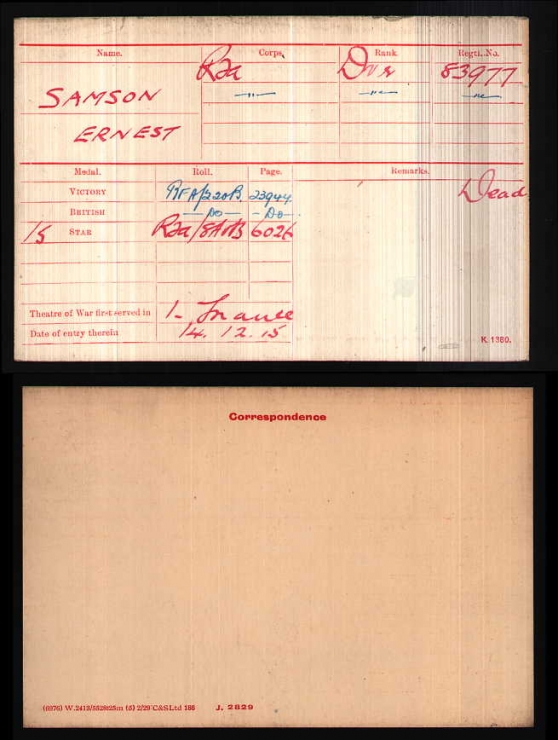 Name. Corps. Rank Regtl. No.
SAMSON RFA Dvr 83977
ERNEST —"— —"— —"—
Medal. Roll. Page. Remarks.
VICTORY RFA/220B. 23944 Dead
BRITISH —Do— —Do—
15 STAR RFA/8A 6026
Theatre of War first served in 1- France
Date of entry therein 14.12.15
K 1380.
Correspondence
J. 2829